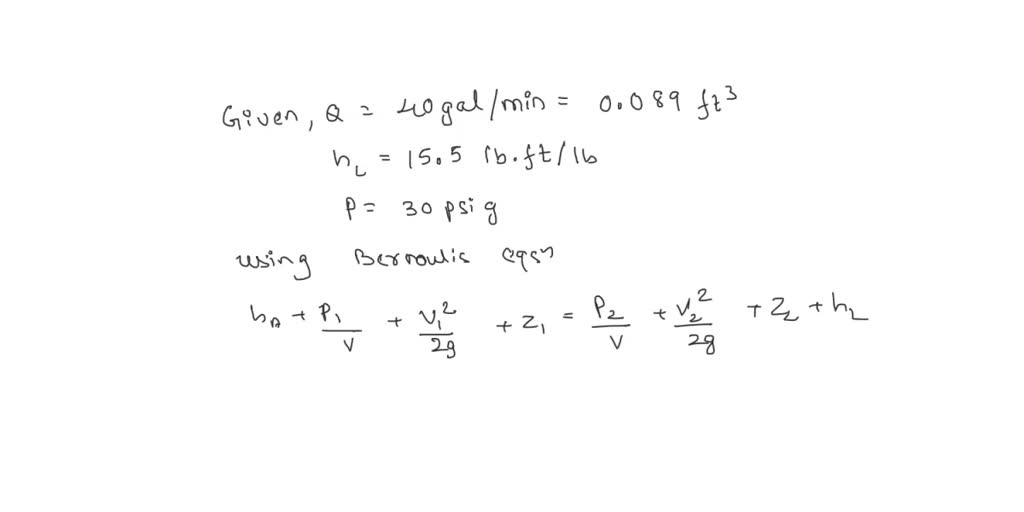 Given, Q = 40gal/min = 0.089 ft³
h_L = 15.5 lb.ft/lb
P = 30 psi g
using Bernoulis eqsn
h_A + P₁/V + V₁²/2g + Z₁ = P₂/V + V₂²/2g + Z₂ + h_L